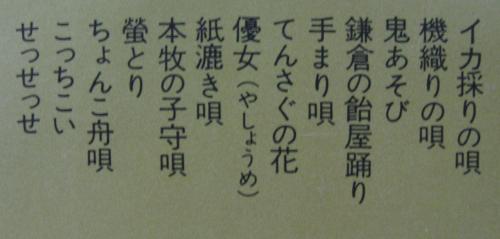 イカ採りの唄
機織りの唄
鬼あそび
鎌倉の飴屋踊り
手まり唄
てんさぐの花
優女（やしょうめ）
紙漉き唄
本牧の子守唄
螢とり
ちょんこ舟唄
こっちこい
せっせっせ